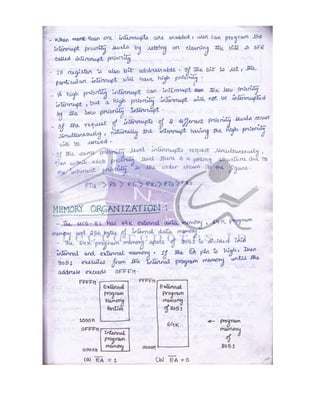 - When more than one interrupts are enabled, user can program the
interrupt priority levels by setting or clearing the bits in SFR
called interrupt priority.
- IP register is also bit addressable. If the bit is set, the
particular interrupt will have high priority.
- A high priority interrupt can interrupt the low priority
interrupt, but a high priority interrupt will not be interrupted
by the low priority interrupt.
- If the request of interrupts of a different priority levels occur
simultaneously, the interrupt having the high priority
will be served.
- If the same priority level interrupts request simultaneously,
then within each priority level there is a polling structure due to
the inherent priority in the order shown in the figure.
MEMORY ORGANIZATION :
- The MCS-51 has 64K external data memory, 64K program
memory and 256 bytes of internal data memory.
- The 64K program memory space of 8051 is divided into
internal and external memory. If the EA pin is high, then
8051 executes from the internal program memory unless the
address exceeds 0FFFH.
FFFFH
External
program
memory
1000H
0FFFH
Internal
program
memory
0000H
(a) EA = 1
FFFFH
External
program
memory
of 8051
64K
0000H
(b) EA = 0
← program
memory
of
8051